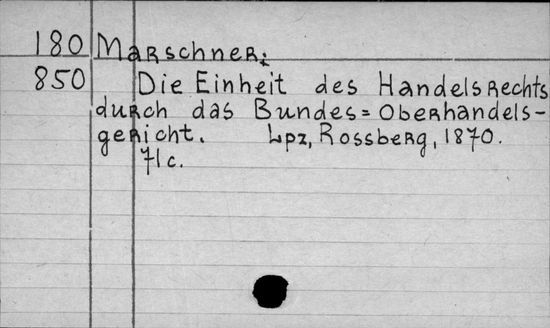 180 Marschner:
850 Die Einheit des Handelsrechts
durch das Bundes=Oberhandels-
gericht. Lpz, Rossberg, 1870.
71c.